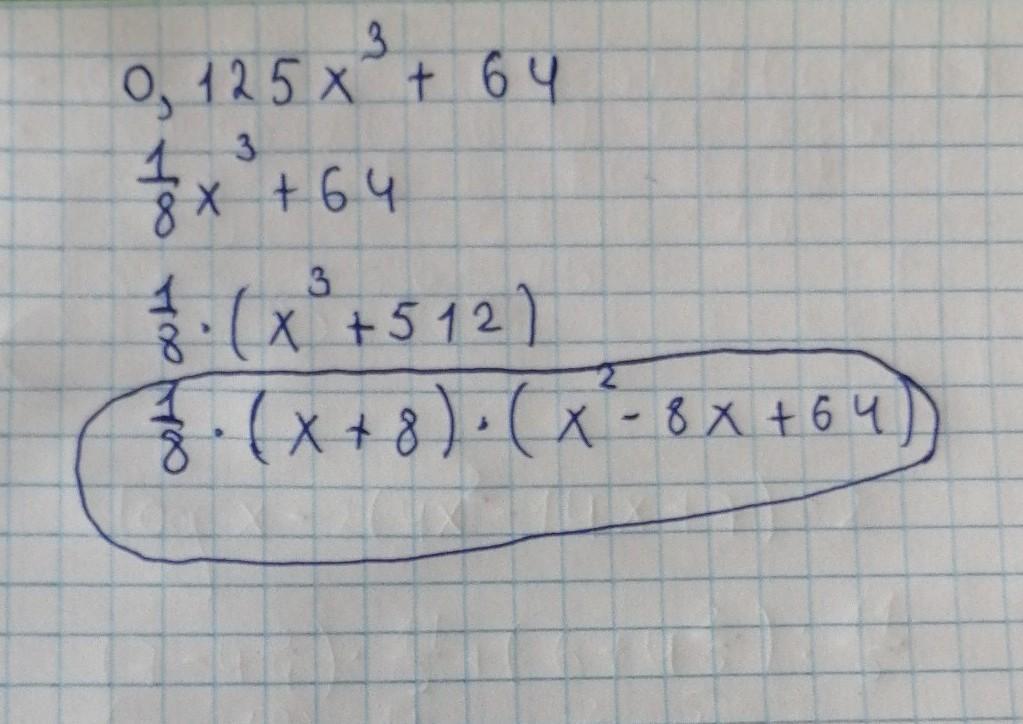 0,125x³ + 64
1/8 x³ + 64
1/8 · (x³ + 512)
1/8 · (x + 8) · (x² - 8x + 64)